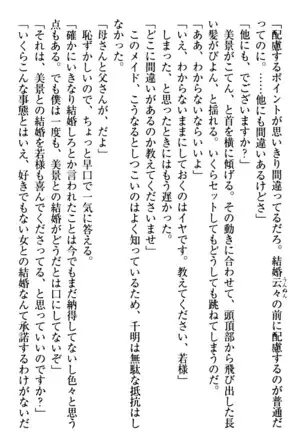 「配慮するポイントが思いきり間違ってるだろ。結婚云々の前に配慮するのが普通だ
って。……他にも間違いあるけどさ」
「他にも、でございますか？」
美景がこてん、と首を横に傾げる。その動きに合わせて、頭頂部から飛び出した長
い髪がぴょん、と揺れる。いくらセットしてもどうしても跳ねてしまうのだ。
「ああ、わからないならいいよ」
「いえ、わからないままにしておくのはイヤです。教えてください、若様」
しまった、と思ったときにはもう遅かった。
「どこに間違いがあるのか教えてくださいませ」
このメイド、こうなるとしつこいのはよく知っているため、千明は無駄な抵抗はし
なかった。
「母さんと父さんが、だよ」
恥ずかしいので、ちょっと早口で一気に答える。
「確かにいきなり結婚しろとか言われたことは今でもまだ納得してないし色々と思う
点もある。でも僕は一度も、美景との結婚がどうだとは口にしてないぞ」
「それは、美景との結婚を若様も喜んでくださってる、と思っていいのですか？」
「いくらこんな事態とはいえ、好きでもない女との結婚なんて承諾するわけがないだ